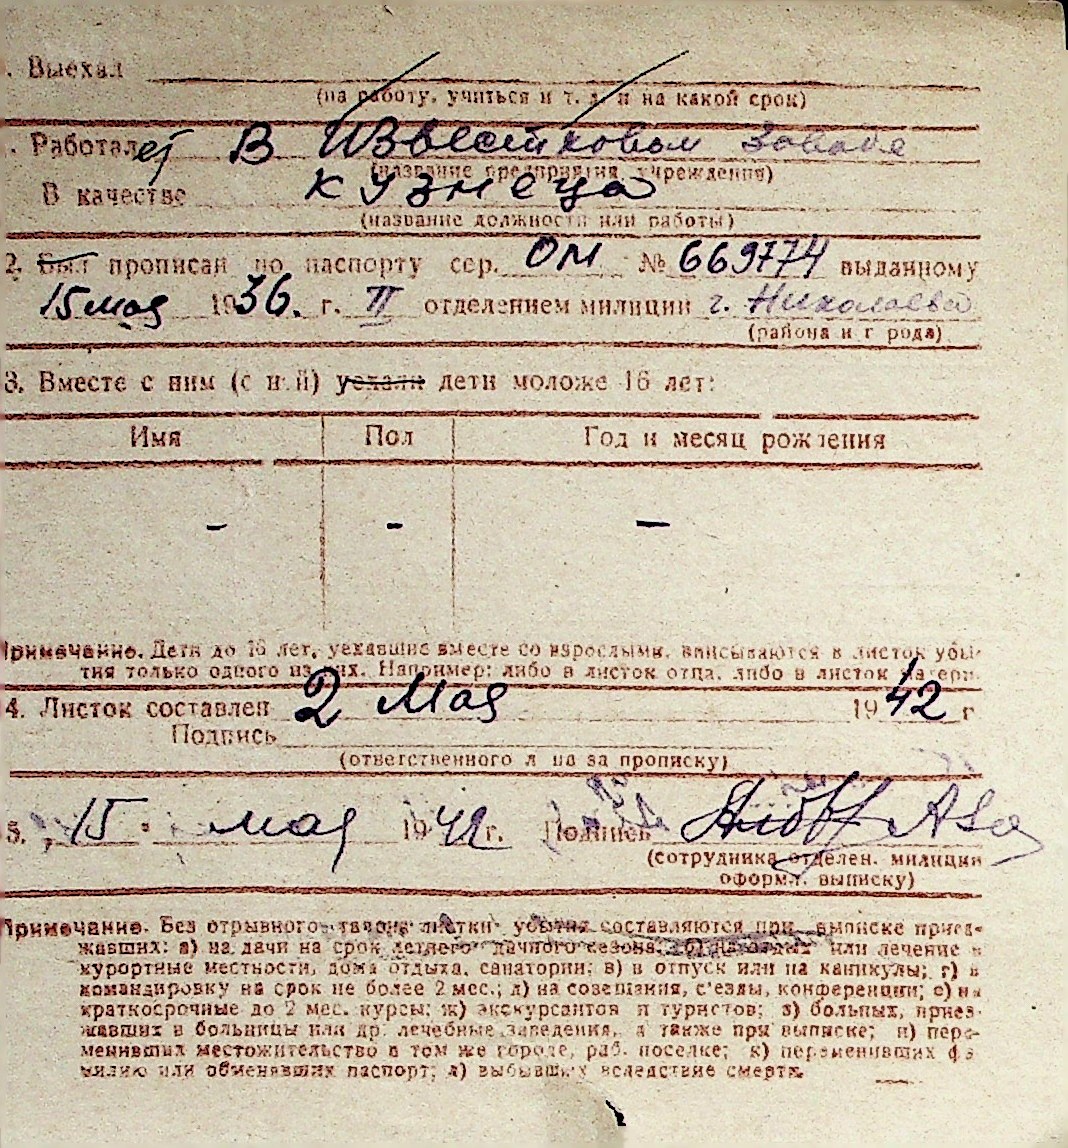 . Выехал
(на работу, учиться и т. д. и на какой срок)
. Работает в Известковом заводе
(название предприятия, учреждения)
В качестве кузнеца
(название должности или работы)
2. Был прописан по паспорту сер. ОМ № 669774 выданному
15 мая 1936. г. II отделением милиции г. Николаева
(района и города)
3. Вместе с ним (с ней) уехали дети моложе 16 лет:
Имя Пол Год и месяц рождения
- - -
Примечание. Дети до 16 лет, уехавшие вместе со взрослыми, вписываются в листок убы-
тия только одного из них. Например: либо в листок отца, либо в листок матери.
4. Листок составлен 2 Мая 1942 г
Подпись
(ответственного лица за прописку)
5. „ 15 " мая 1942 г. Подпись
(сотрудника отделен. милиции
оформл. выписку)
Примечание. Без отрывного талона листки убытия составляются при выписке приез-
жавших: а) на дачи на срок летнего дачного сезона; б) на отдых или лечение в
курортные местности, дома отдыха, санатории; в) в отпуск или на каникулы; г) в
командировку на срок не более 2 мес.; д) на совещания, с'езды, конференции; е) на
краткосрочные до 2 мес. курсы; ж) экскурсантов и туристов; з) больных, приез-
жавших в больницы или др. лечебные заведения, а также при выписке; и) пере-
менивших местожительство в том же городе, раб. поселке; к) переменивших фа-
милию или обменявших паспорт; л) выбывших вследствие смерти.